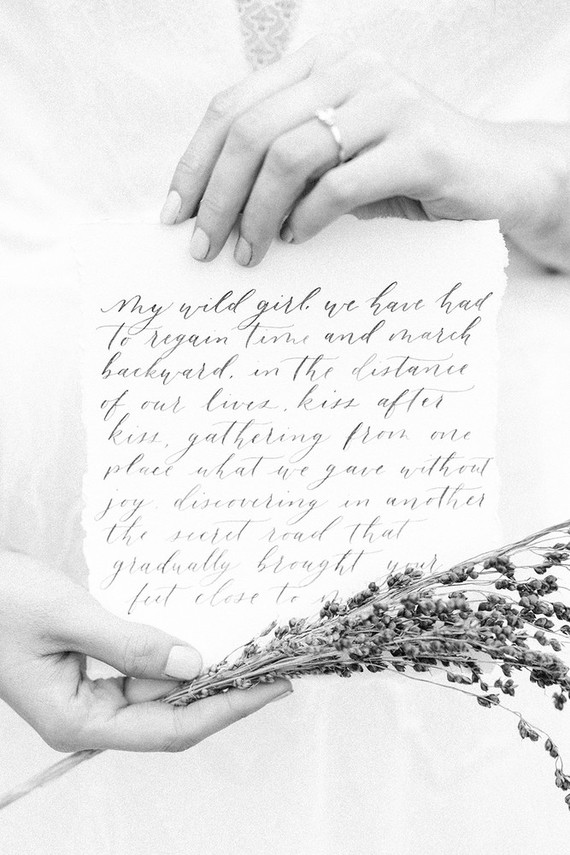 My wild girl, we have had
to regain time and march
backward, in the distance
of our lives, kiss after
kiss, gathering from one
place what we gave without
joy, discovering in another
the secret road that
gradually brought your
feet close to